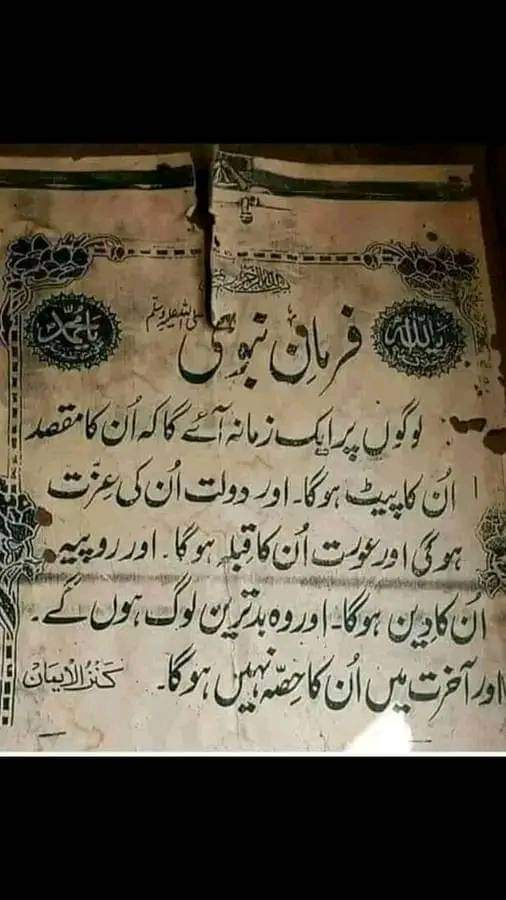 یا اللہ
یا محمد
فرمانِ نبوی صلی اللہ علیہ وسلم
لوگوں پر ایک زمانہ آئے گا کہ اُن کا مقصد
اُن کا پیٹ ہوگا۔ اور دولت اُن کی عزّت
ہوگی اور عورت اُن کا قبلہ ہوگا۔ اور روپیہ
اُن کا دین ہوگا۔ اور وہ بدترین لوگ ہوں گے۔
اور آخرت میں اُن کا حصّہ نہیں ہوگا۔ کنز الایمان